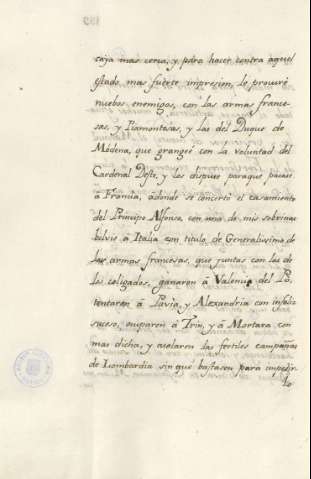 caja mas cerca, y para hacer contra aquel
estado mas fuerte impresion, le procuré
nuebos enemigos, con las armas france-
sas, y Piamontesas, y las del Duque de
Módena, que grangeé con la voluntad del
Cardenal Deste, y le dispuse paraque pasase
á Francia, adonde se concertó el casamiento
del Principe Alfonso con una de mis sobrinas
bolvió á Italia con titulo de Generalissimo de
las armas francesas, que juntas con las de
los coligados, ganaron á Valencia del Pó,
tentaron á Pavia, y Alexandria con infeliz
suceso, ocuparon á Trin, y á Mortara con
mas dicha, y asolaron las fertiles campañas
de Lombardia sin que bastasen para impedir-
lo